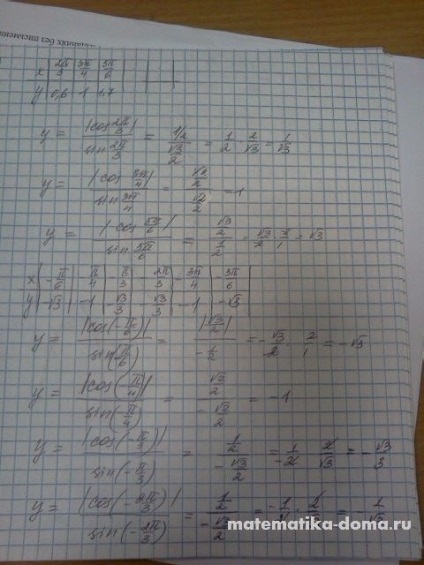 x | 2π/3 | 3π/4 | 5π/6 |
y | 0,6 | 1 | 1,7
y = |cos 2π/3| / sin 2π/3 = 1/2 / √3/2 = 1/2 · 2/√3 = 1/√3
y = |cos 3π/4| / sin 3π/4 = √2/2 / √2/2 = 1
y = |cos 5π/6| / sin 5π/6 = √3/2 / 1/2 = √3/2 · 2/1 = √3
x | -π/6 | -π/4 | π/3 | 2π/3 | -3π/4 | -5π/6 |
y | -√3 | -1 | -√3/3 | √3/3 | -1 | -√3
y = |cos(-π/6)| / sin(π/6) = |√3/2| / -1/2 = -√3/2 · 2/1 = -√3
y = |cos(-π/4)| / sin(-π/4) = √2/2 / -√2/2 = -1
y = |cos(-π/3)| / sin(-π/3) = 1/2 / -√3/2 = -1/2 · 2/√3 = -√3/3
y = |cos(-2π/3)| / sin(-2π/3) = 1/2 / -√3/2 = -1/2 · 2/√3 = -1/√3
matematika-doma.ru